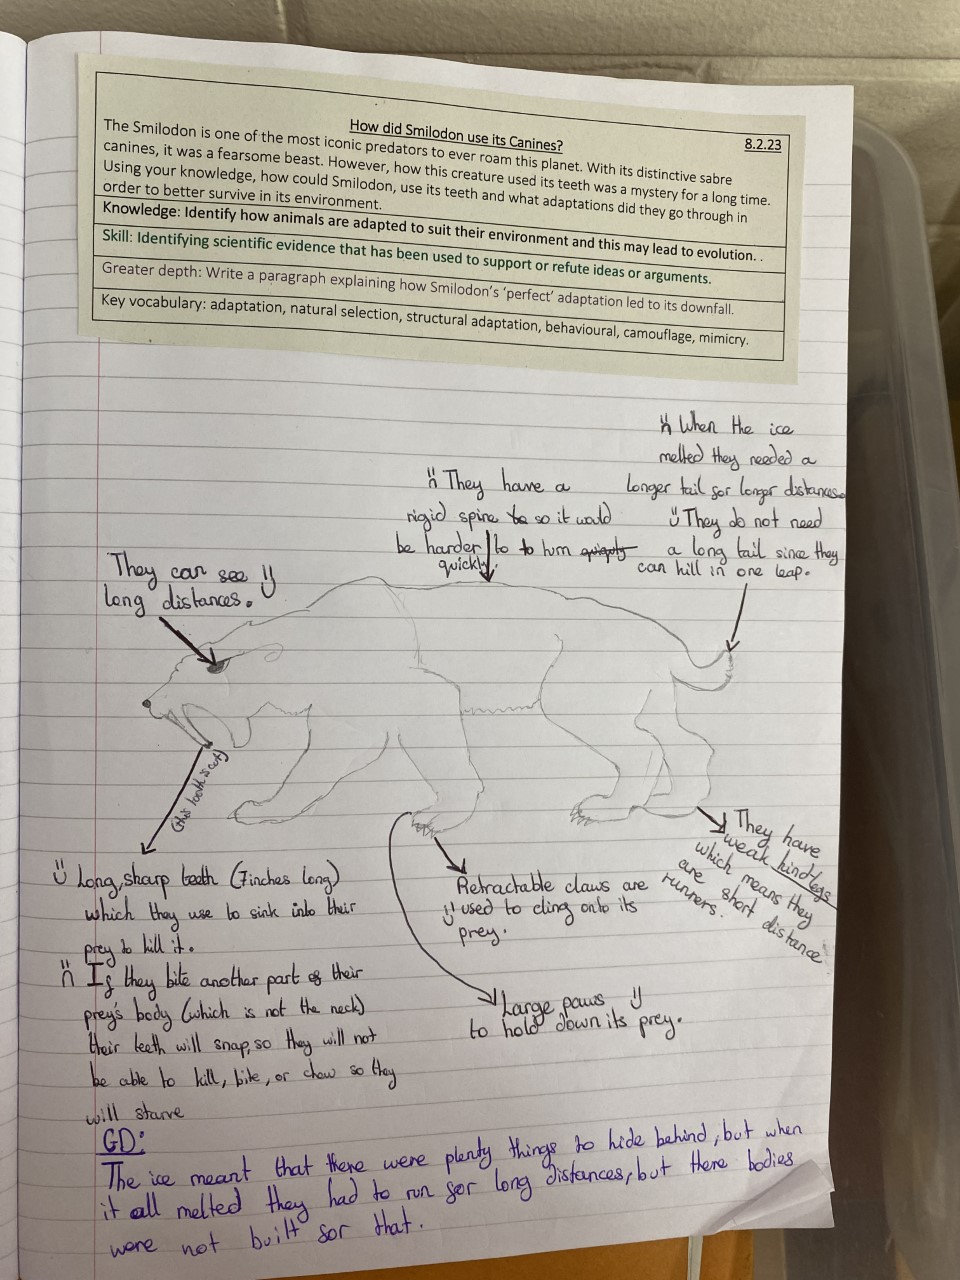 How did Smilodon use its Canines?
8.2.23
The Smilodon is one of the most iconic predators to ever roam this planet. With its distinctive sabre
canines, it was a fearsome beast. However, how this creature used its teeth was a mystery for a long time.
Using your knowledge, how could Smilodon, use its teeth and what adaptations did they go through in
order to better survive in its environment.
Knowledge: Identify how animals are adapted to suit their environment and this may lead to evolution. .
Skill: Identifying scientific evidence that has been used to support or refute ideas or arguments.
Greater depth: Write a paragraph explaining how Smilodon's 'perfect' adaptation led to its downfall.
Key vocabulary: adaptation, natural selection, structural adaptation, behavioural, camouflage, mimicry.
When the ice
melted they needed a
longer tail for longer distances.
They do not need
a long tail since they
can kill in one leap.
They have a
rigid spine so it would
be harder to turn
quickly.
They can see
long distances.
(this tooth is cut)
Long, sharp teeth (7inches long)
which they use to sink into their
prey to kill it.
If they bite another part of their
prey's body (which is not the neck)
their teeth will snap, so they will not
be able to kill, bite, or chew so they
will starve
Retractable claws are
used to cling onto its
prey.
Large paws
to hold down its prey.
They have
weak hindlegs
which means they
are short distance
runners.
GD:
The ice meant that there were plenty things to hide behind, but when
it all melted they had to run for long distances, but there bodies
were not built for that.